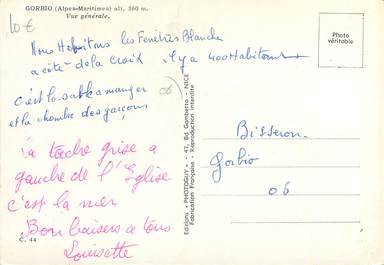 GORBIO (Alpes-Maritimes) alt. 360 m.
Vue générale.
10 €
Nous Habitons les Fenêtres Blanche
a côté de la croix. Il y a 400 Habitants
c'est la sable a manger
et la chambre des garçons
06
la tache grise a
gauche de l'Eglise
c'est la mer
Bons baisers a tous
Louisette
C. 44
Editions « PHOTOGUY » - 47, Bd Gambetta - NICE
Fabrication Française - Reproduction interdite
Photo
véritable
Bisseron
Gorbio
06